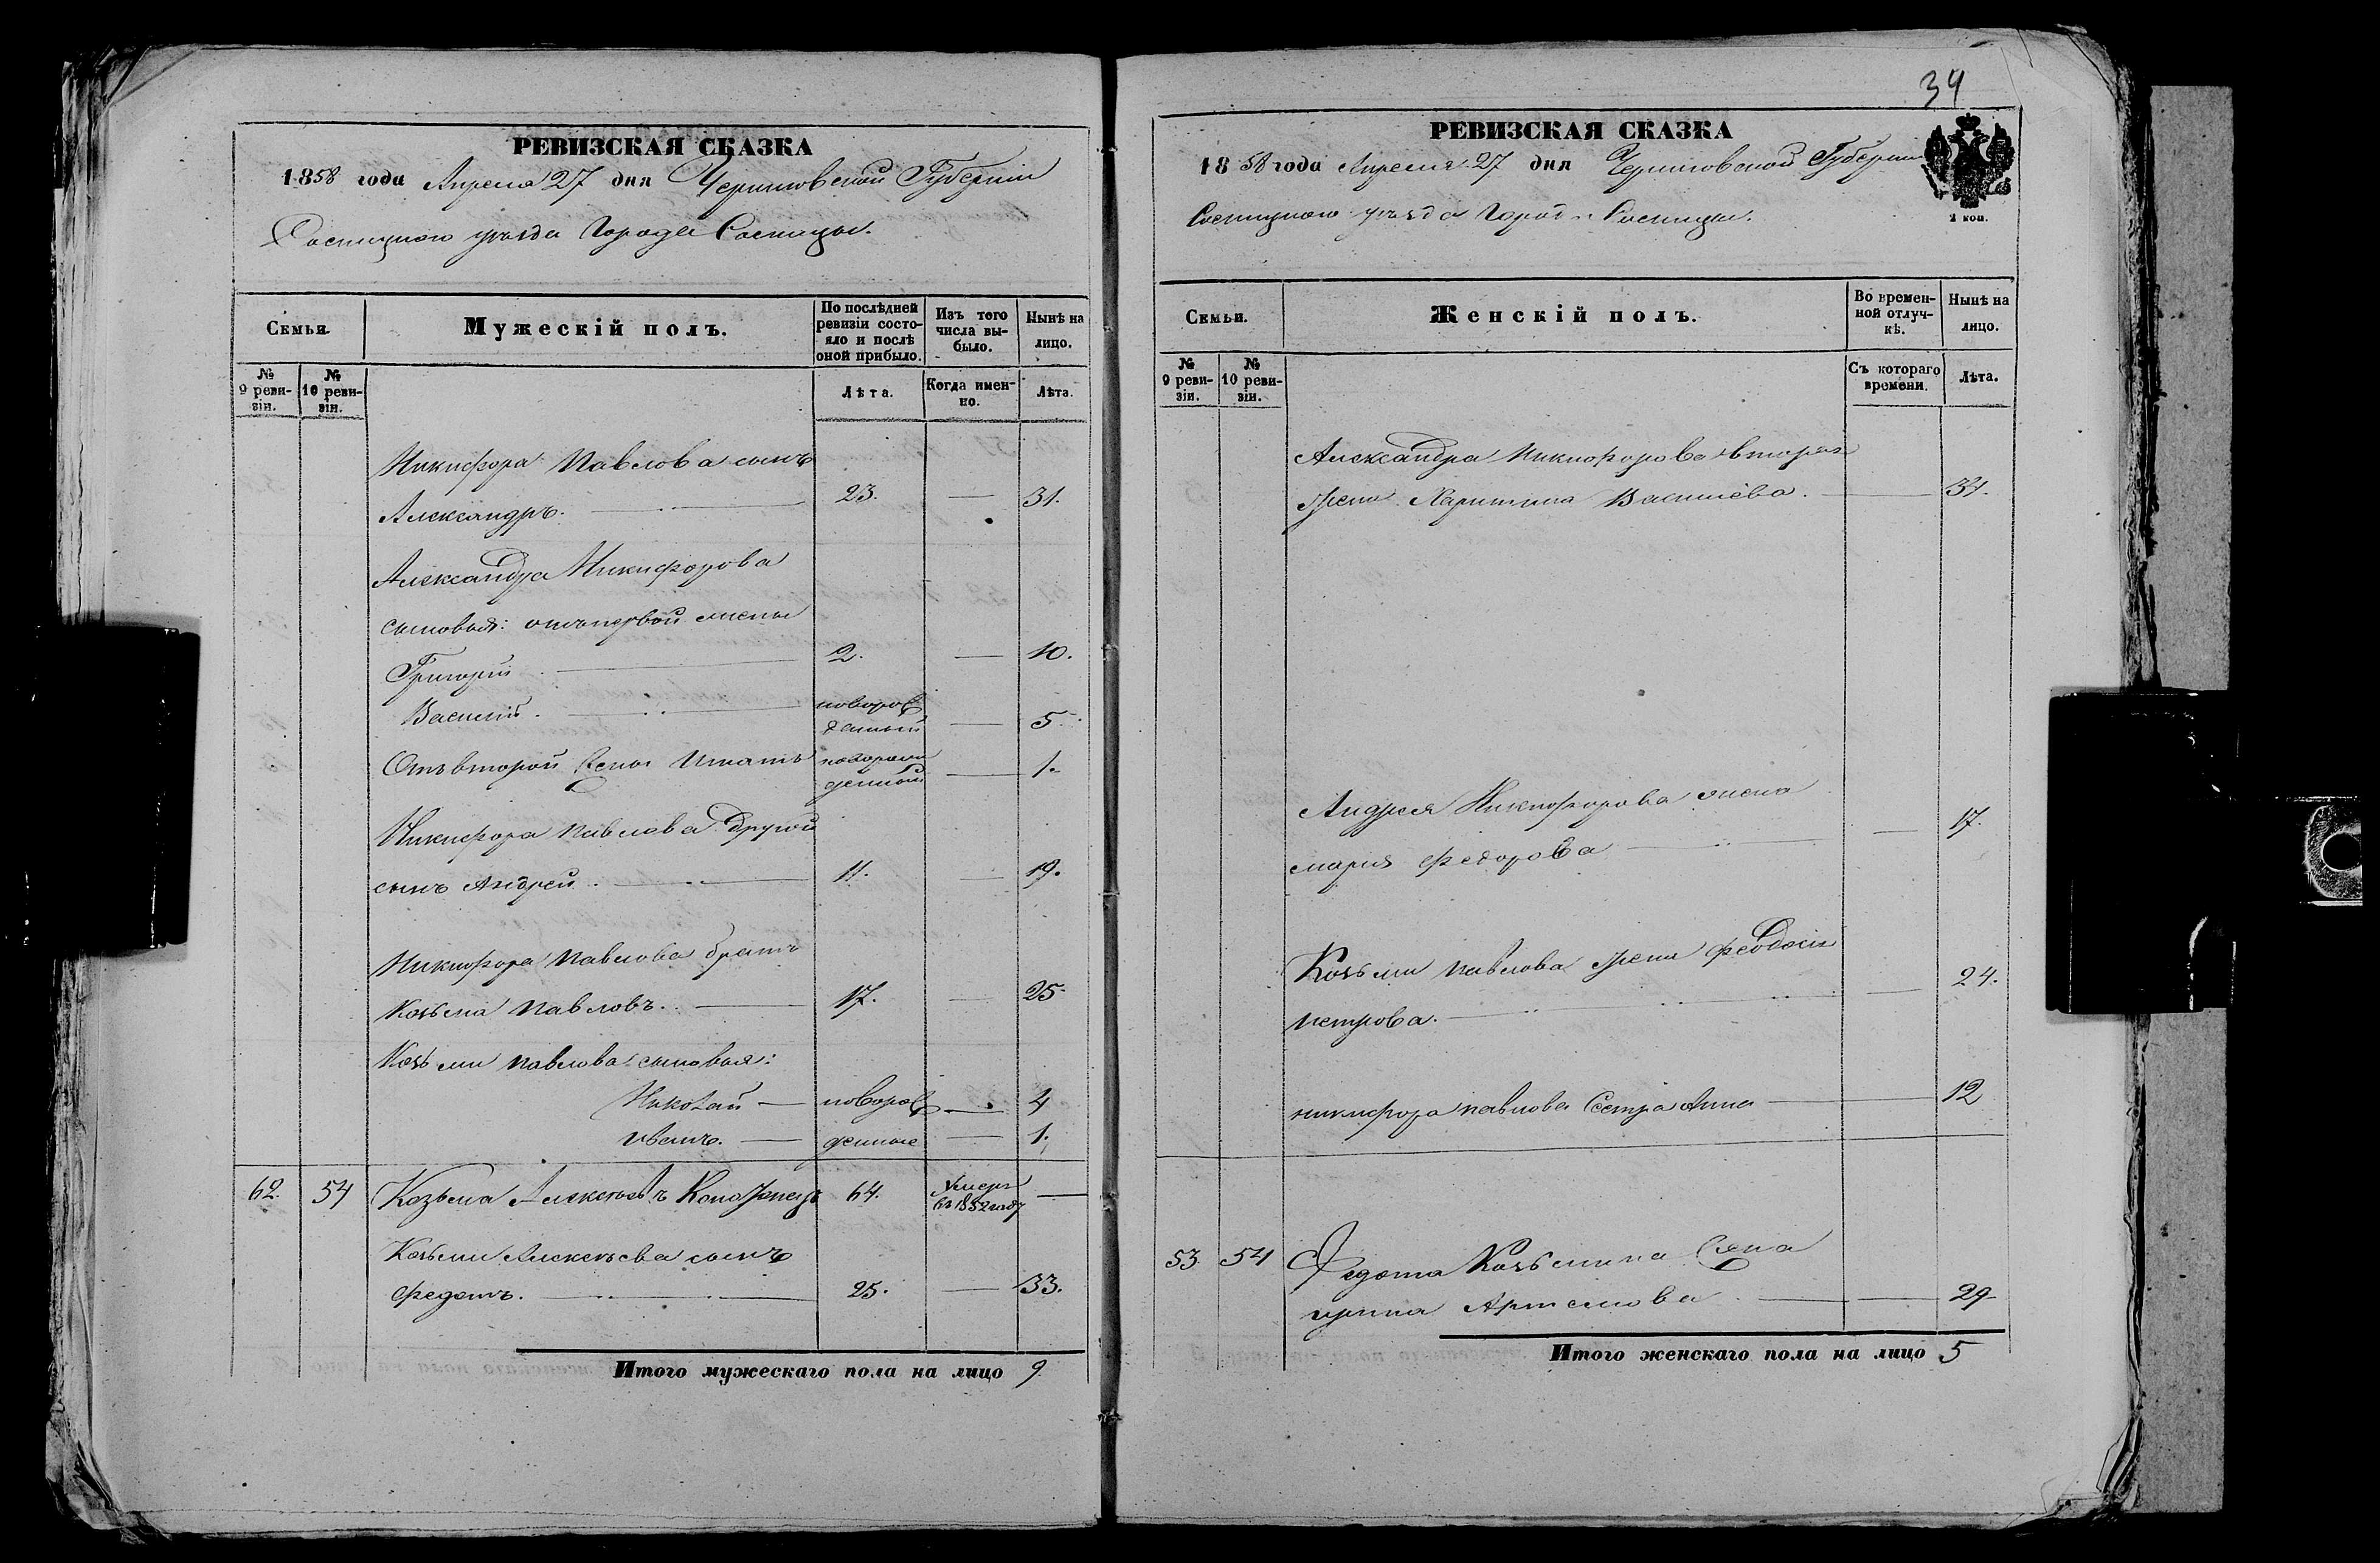 РЕВИЗСКАЯ СКАЗКА
1858 года Апреля 27 дня Черниговской Губернiи
Сосницкого уѣзда Города Сосницы.
Семьи.
Мужескiй полъ.
По послѣдней ревизiи состояло и послѣ оной прибыло.
Изъ того числа выбыло.
Нынѣ на лицо.
№ 9 ревизiи.
№ 10 ревизiи.
Лѣта.
Когда именно.
Лѣта.
Никифора Павлова сынъ
Александръ. 23. — 31.
Александра Никифорова
сыновья: отъ первой жены
Григорiй 2. — 10.
Василiй. новорожденный — 5.
Отъ второй жены Игнатъ новорожденный — 1.
Никифора Павлова другой
сынъ Андрей. 11. — 19.
Никифора Павлова братъ
Козьма Павловъ. 17. — 25.
Козьми Павлова сыновья:
Николай — новорож — 4
Иванъ. — денные — 1.
62. 54 Козьма Алексѣевъ 64. умеръ въ 1852 году —
Козьми Алексѣева сынъ
Федотъ. 25. — 33.
Итого мужескаго пола на лицо 9.
34
РЕВИЗСКАЯ СКАЗКА
1858 года Апреля 27 дня Черниговской Губернiи
Сосницкого уѣзда Города Сосницы.
1 коп.
Семьи.
Женскiй полъ.
Во временной отлучкѣ.
Нынѣ на лицо.
№ 9 ревизiи.
№ 10 ревизiи.
Съ котораго времени.
Лѣта.
Александра Никифорова вторая
жена Харитина Васильева. — 31.
Андрея Никифорова жена
Мария Федорова — 17.
Козьми Павлова жена Феодосiя
Петрова. — 24.
Никифора Павлова Сестра Анна — 12
53. 54 Федота Козьмина жена
Ирина Артемова — 29
Итого женскаго пола на лицо 5